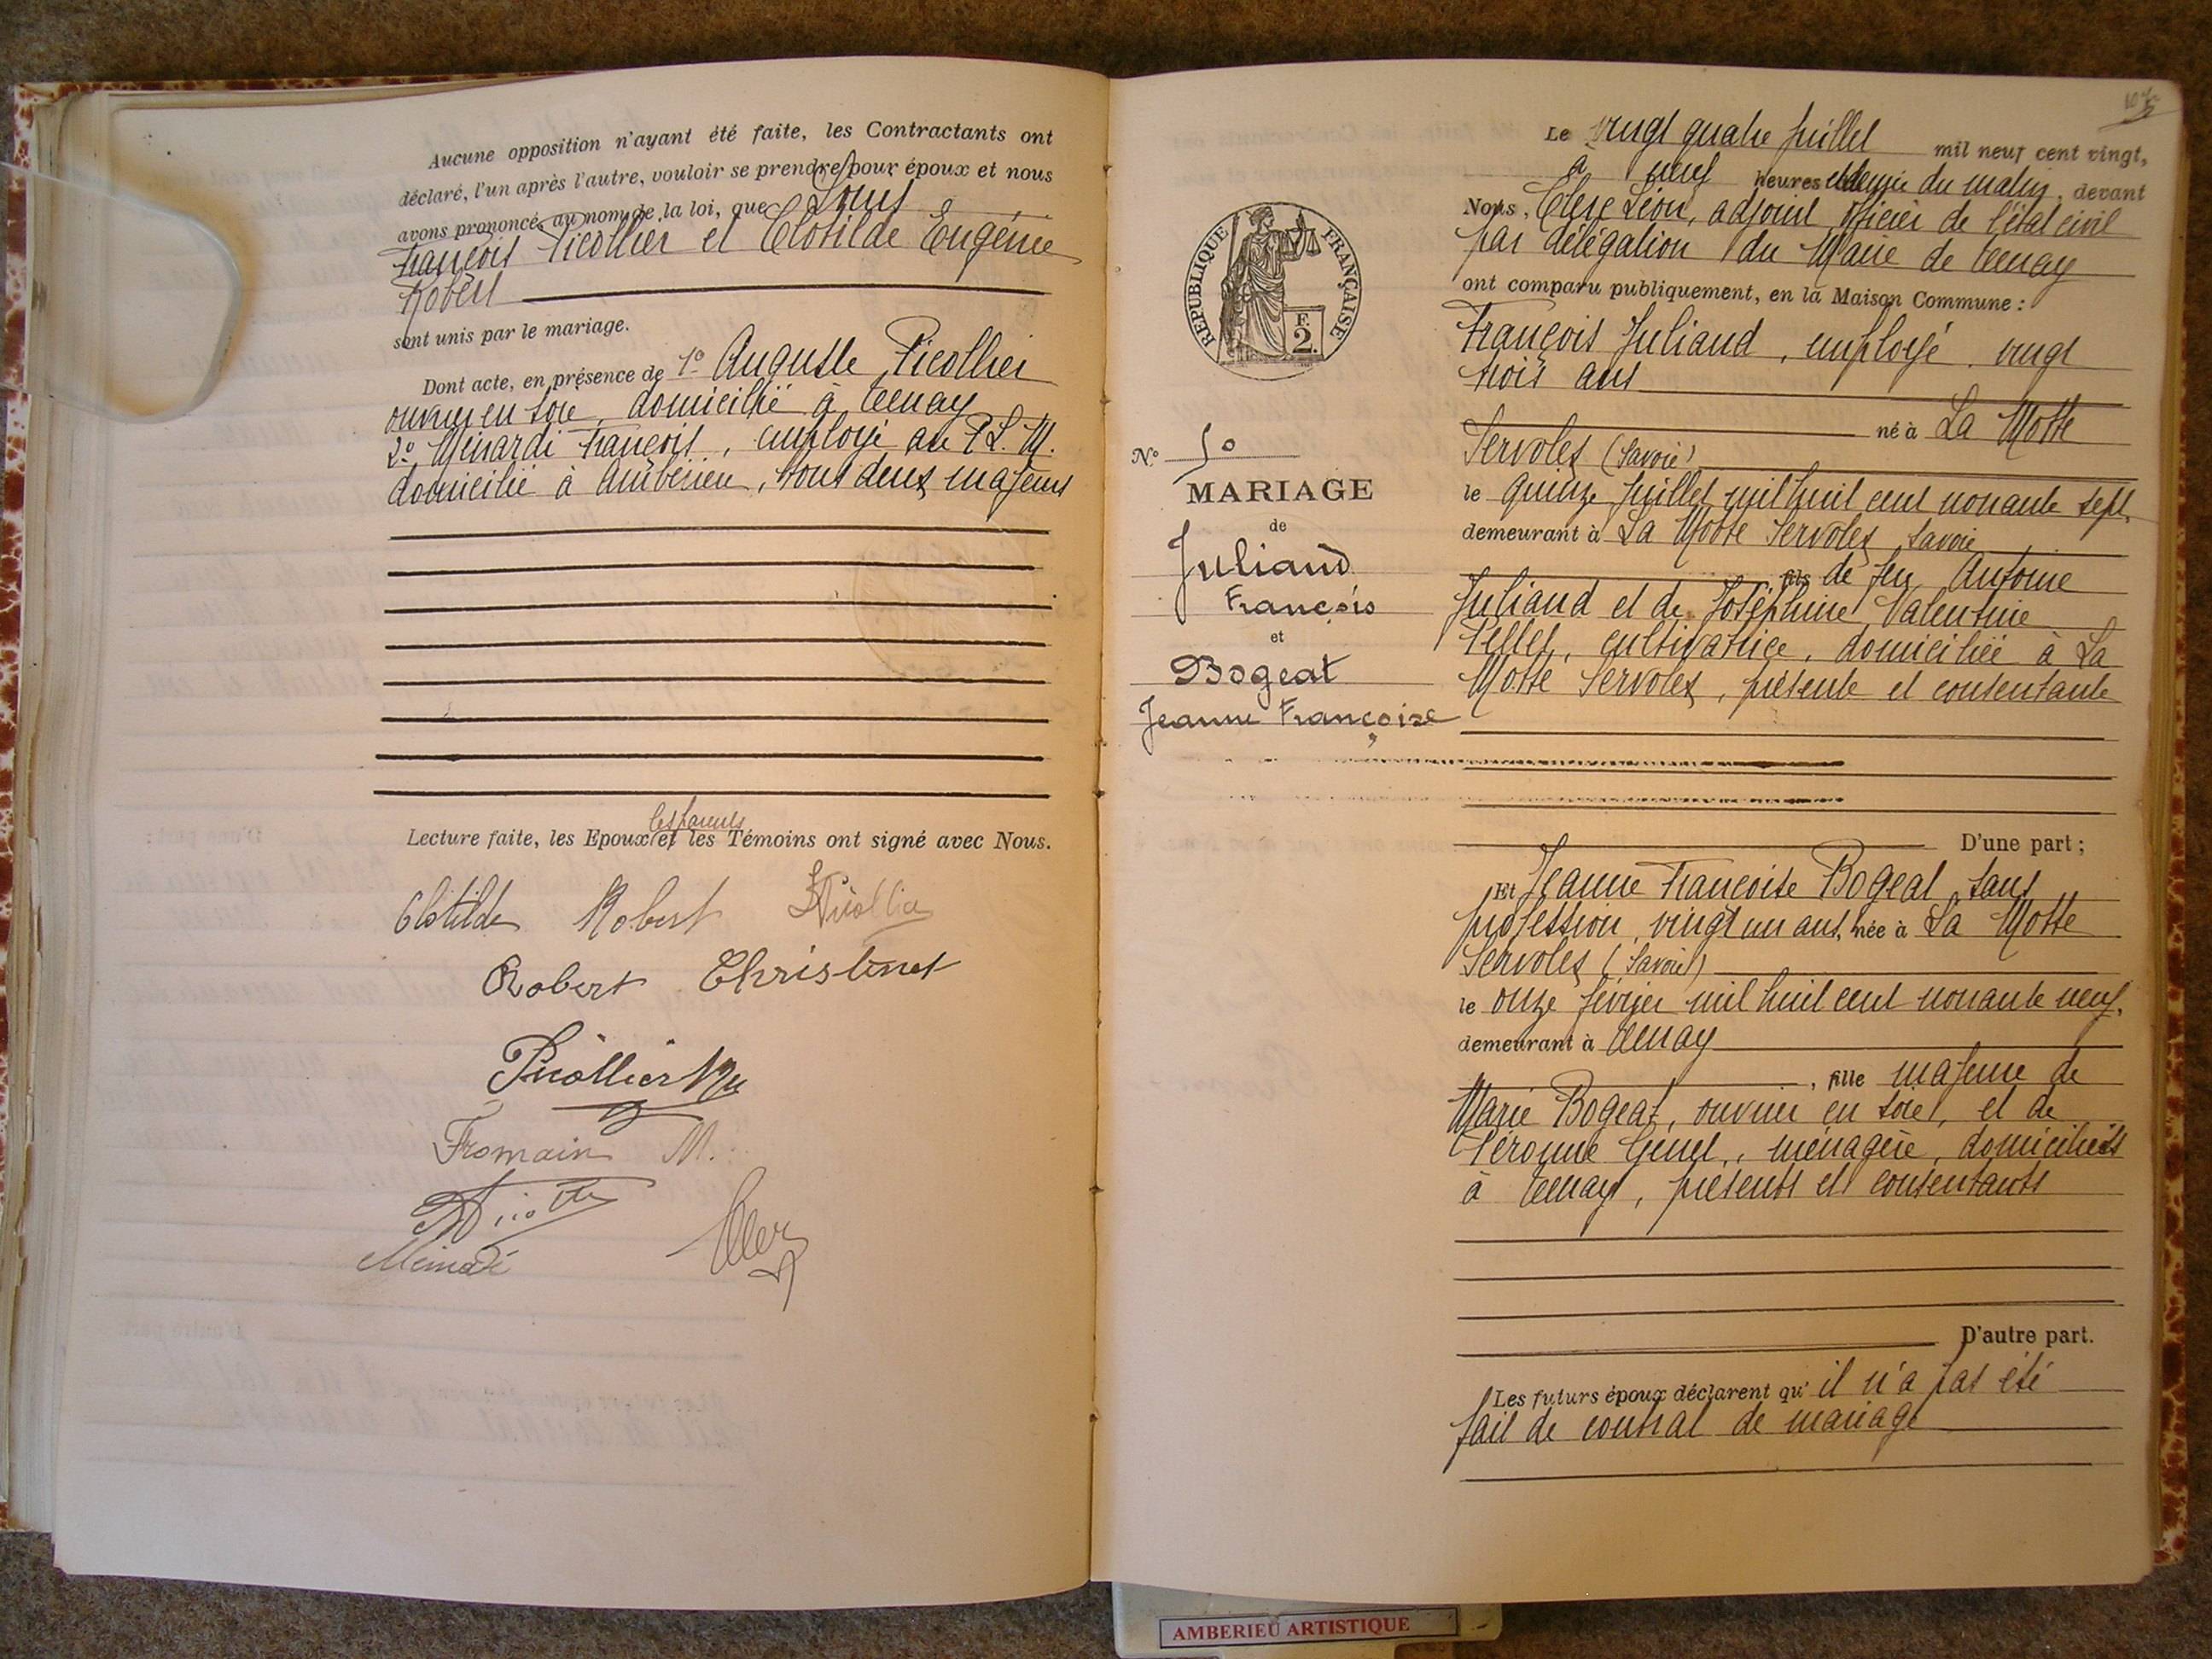 Aucune opposition n'ayant été faite, les Contractants ont
déclaré, l'un après l'autre, vouloir se prendre pour époux et nous
avons prononcé, au nom de la loi, que Louis
François Picollier et Clotilde Eugénie
Robert
sont unis par le mariage.
Dont acte, en présence de 1º Auguste Picollier
ouvrier en soie, domicilié à Tenay
2º Minardi François, employé au P.L.M.
domicilié à Ambérieu, tous deux majeurs
les parents
Lecture faite, les Epoux et les Témoins ont signé avec Nous.
Clotilde Robert
Robert Christinet
Picollier
Fromain M.
Minardi
Clerc
Le vingt quatre juillet mil neuf cent vingt,
à neuf heures et demie du matin, devant
Nous, Clerc Léon, adjoint officier de l'état civil
par délégation du Maire de Tenay
ont comparu publiquement, en la Maison Commune :
François Juliand, employé, vingt
trois ans
né à La Motte
Servolex (Savoie)
le quinze juillet mil huit cent nonante sept,
demeurant à La Motte Servolex, Savoie
fils de feu Antoine
Juliand et de Joséphine Valentine
Pellet, cultivatrice, domiciliée à La
Motte Servolex, présente et consentante
D'une part ;
Et Jeanne Françoise Bogeat, sans
profession, vingt un ans, née à La Motte
Servolex (Savoie)
le onze février mil huit cent nonante neuf,
demeurant à Tenay
, fille majeure de
Marie Bogeat, ouvrier en soie, et de
Péronne Genet, ménagère, domiciliés
à Tenay, présents et consentants
D'autre part.
Les futurs époux déclarent qu'il n'a pas été
fait de contrat de mariage
REPUBLIQUE FRANÇAISE
F.
2.
Nº 50
MARIAGE
de
Juliand
François
et
Bogeat
Jeanne Françoise
AMBERIEU ARTISTIQUE